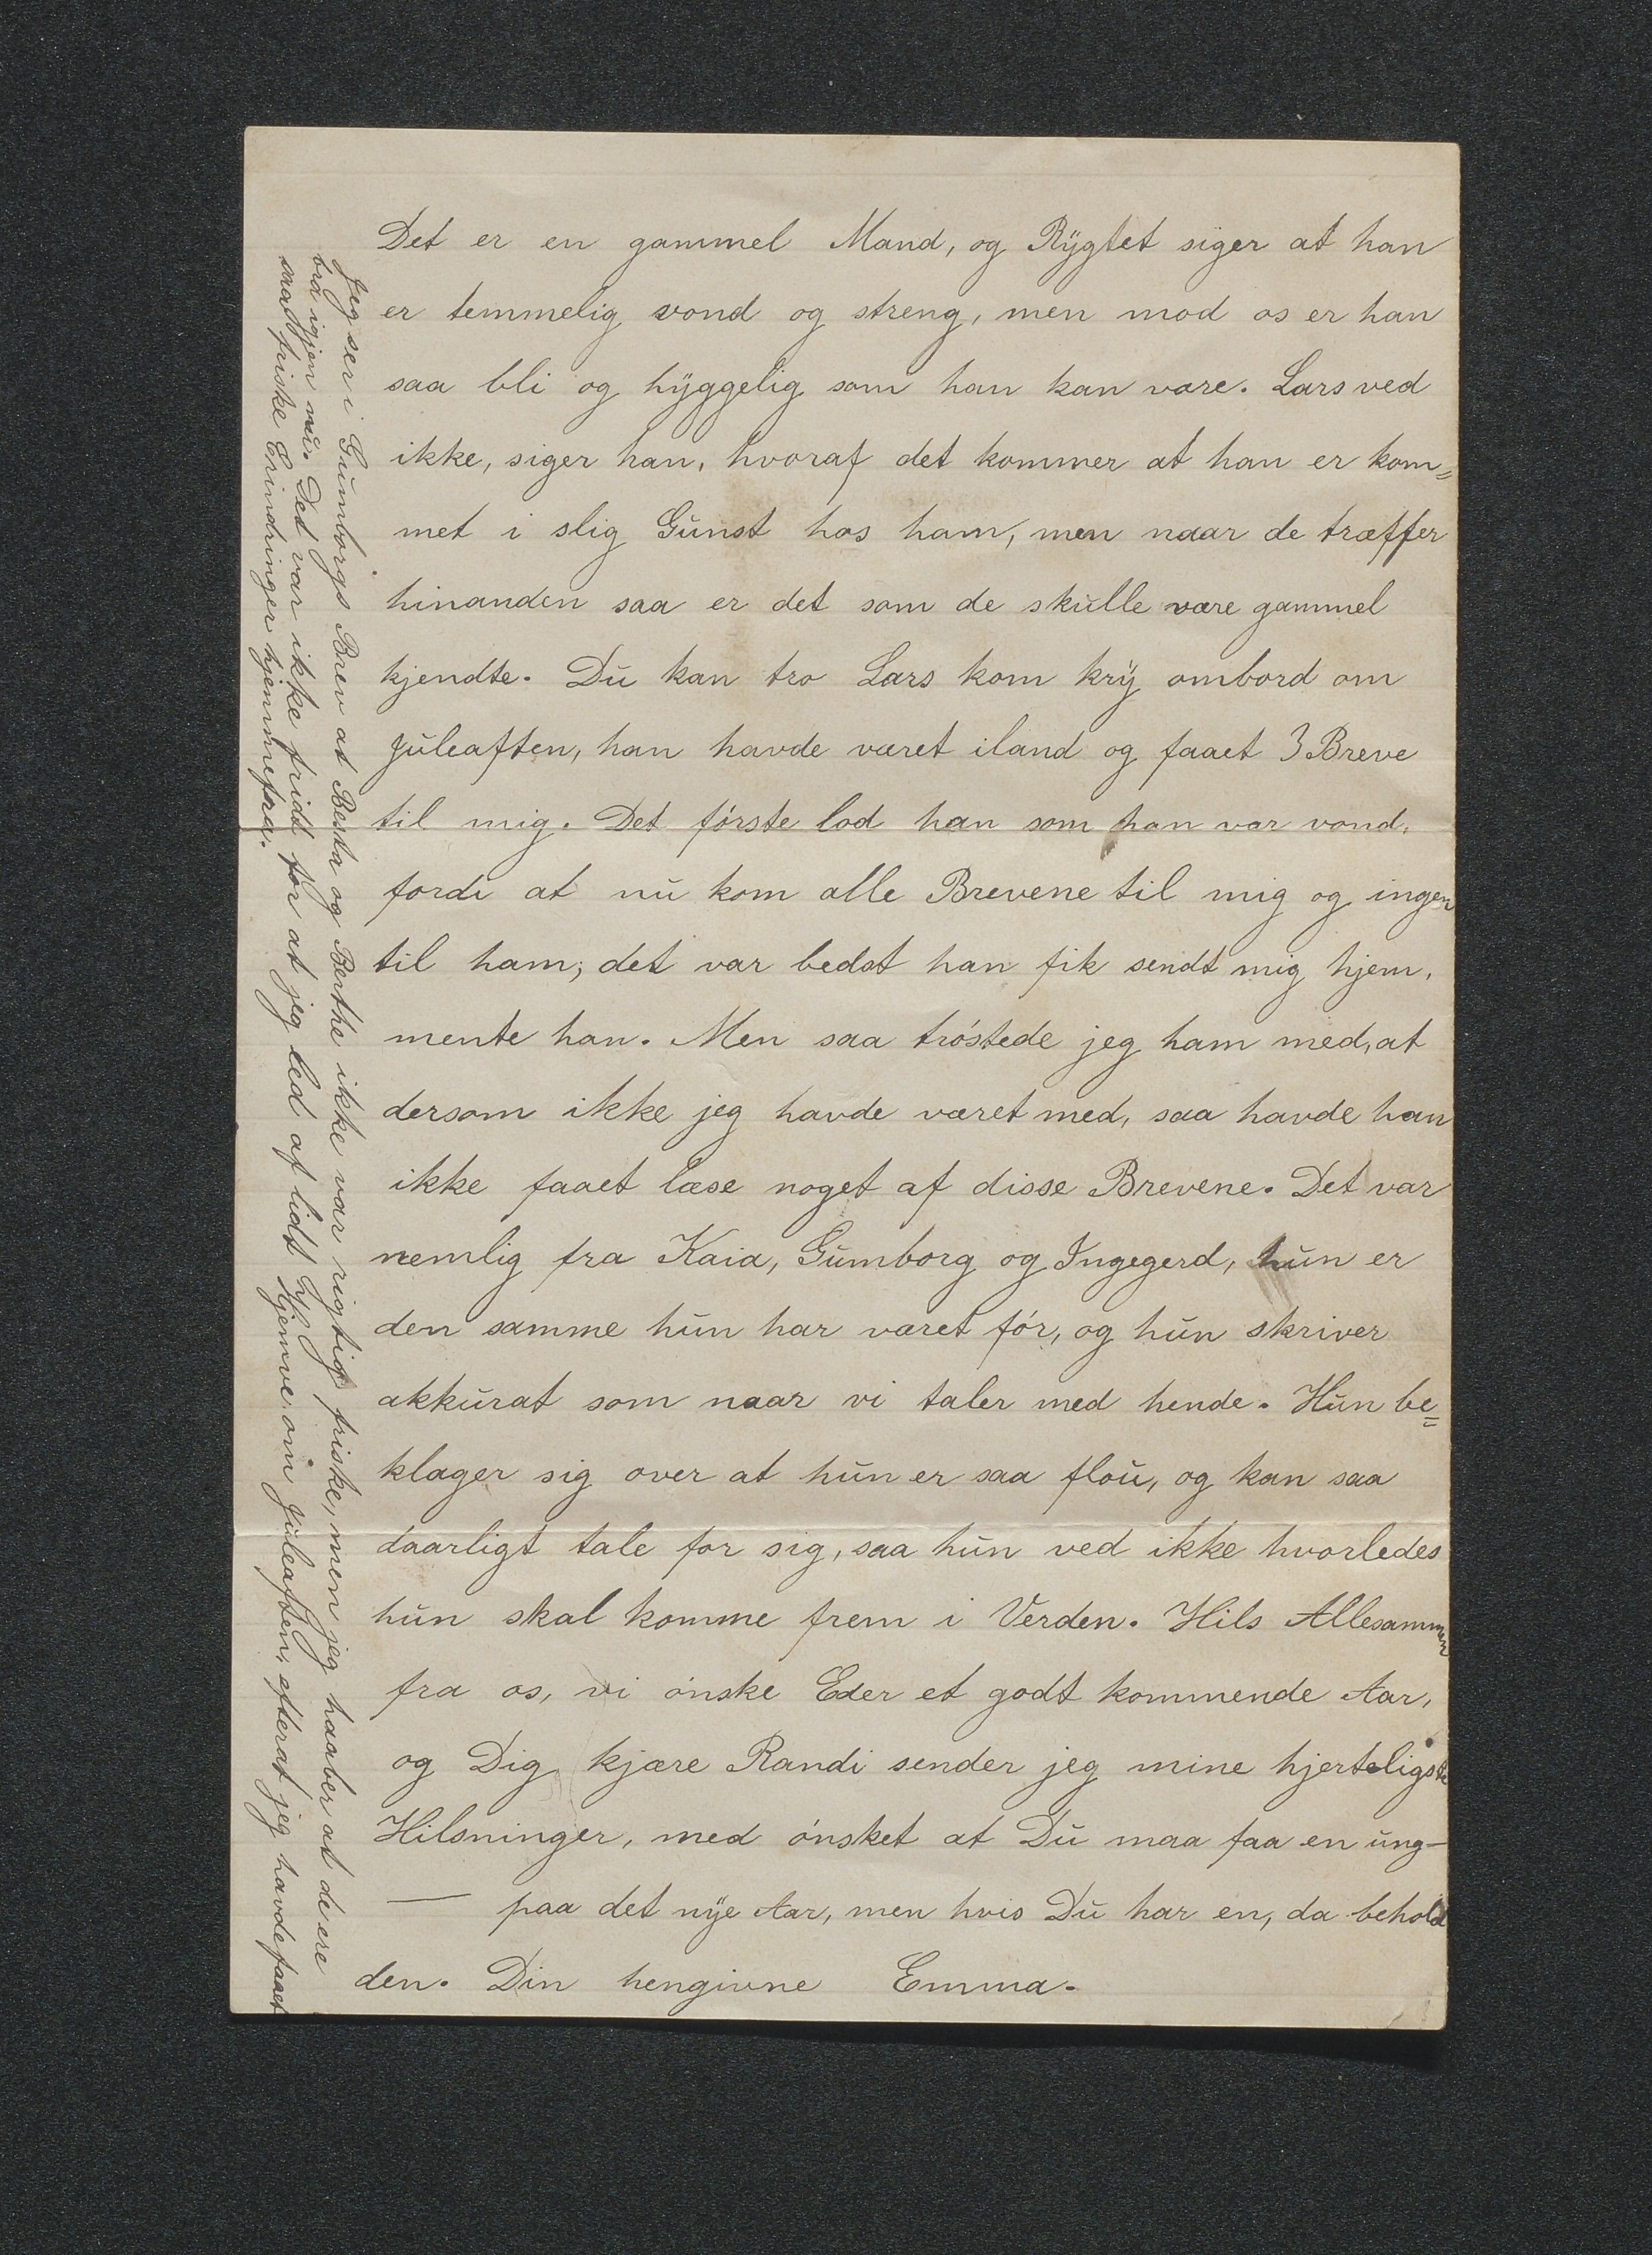 Det er en gammel Mand, og Rygtet siger at han
er temmelig vond og streng, men mod os er han
saa bli og hyggelig som han kan være. Lars ved
ikke, siger han, hvoraf det kommer at han er kom=
met i slig Gunst hos ham, men naar de træffer
hinanden saa er det som de skulle være gammel
kjendte. Du kan tro Lars kom kry ombord om
Juleaften, han havde været iland og faaet 3 Breve
til mig. Det første lod han som han var vond,
fordi at nu kom alle Brevene til mig og ingen
til ham; det var bedst han fik sendt mig hjem,
mente han. Men saa trøstede jeg ham med, at
dersom ikke jeg havde været med, saa havde han
ikke faaet læse noget af disse Brevene. Det var
nemlig fra Kaia, Gumborg og Ingegerd, hun er
den samme hun har været før, og hun skriver
akkurat som naar vi taler med hende. Hun be=
klager sig over at hun er saa flou, og kan saa
daarligt tale for sig, saa hun ved ikke hvorledes
hun skal komme frem i Verden. Hils Allesammen
fra os, vi ønske Eder et godt kommende Aar,
og Dig kjære Randi sender jeg mine hjerteligste
Hilsninger, med ønsket at Du maa faa en ung—
— paa det nye Aar, men hvis Du har en, da behold
den. Din hengivne Emma.
Jeg ser i Gumborgs Brev at Besta og Berthe ikke var rigtig friske, men jeg haaber at de ere
bra igjen nu. Det var ikke fridt for at jeg led af lidt Hjemve om Juleaften, efterat jeg havde faaet
saa friske Erindringer hjemmefra.